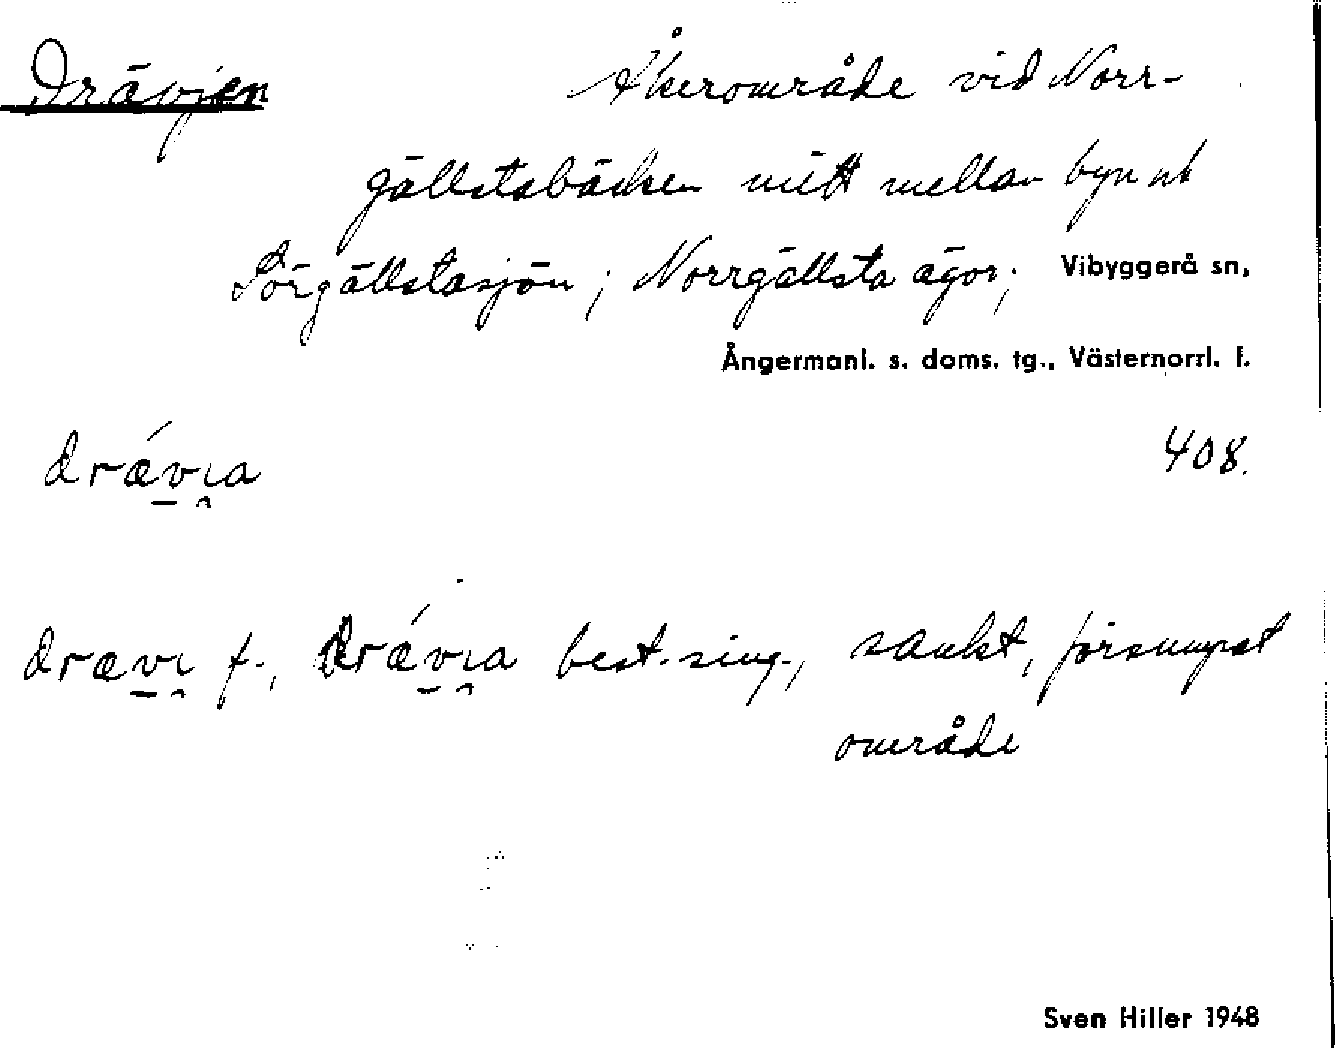 Drävjen
Åkerområde vid Norr-
gällstabäcken mitt mellan byn och
Sörgällstasjön; Norrgällsta ägor; Vibyggerå sn,
Ångermanl. s. doms. tg., Västernorrl. l.
drǽvɩa 408.
drævɩ f., drǽvɩa best. sing., sankt, försumpat
område
Sven Hiller 1948